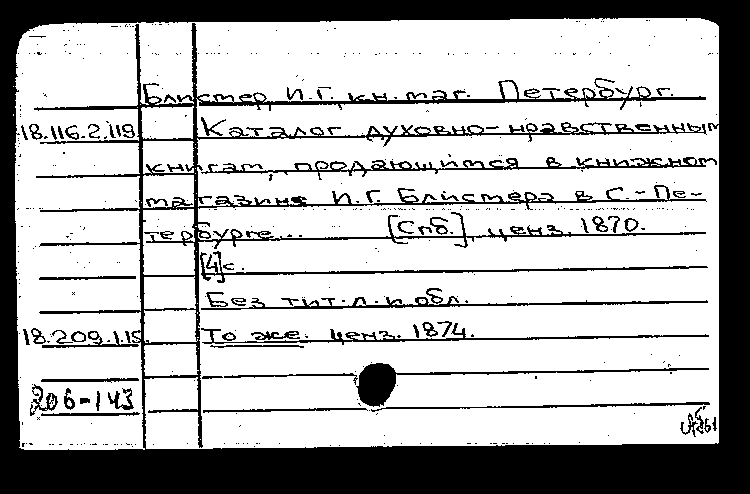 Блистер, И.Г., кн. маг. Петербург.
18.116.2.119 Каталог духовно-нравственным
книгам, продающимся в книжном
магазине И.Г. Блистера в С.-Пе-
тербурге... [Спб.], ценз. 1870.
[4]с.
Без тит. л. и обл.
18.209.1.15 То же. ценз. 1874.
206-143